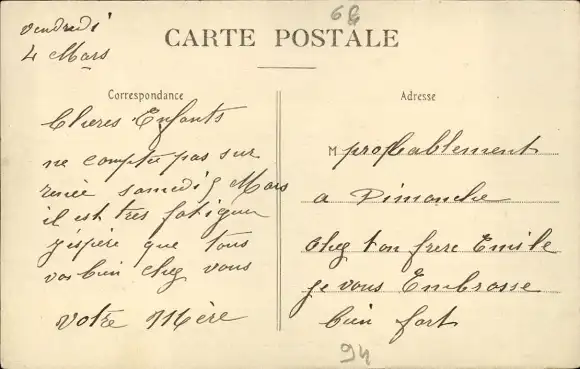 6f
vendredi
4 Mars
CARTE POSTALE
Correspondance
Adresse
Chères Enfants
ne compter pas sur
renée samedi 5 Mars
il est très fatiguer
j'éspère que tous
vas bien cheg vous
votre Mère
M probablement
a Dimanche
cheg ton frere Emile
je vous Embrasse
bien fort
94